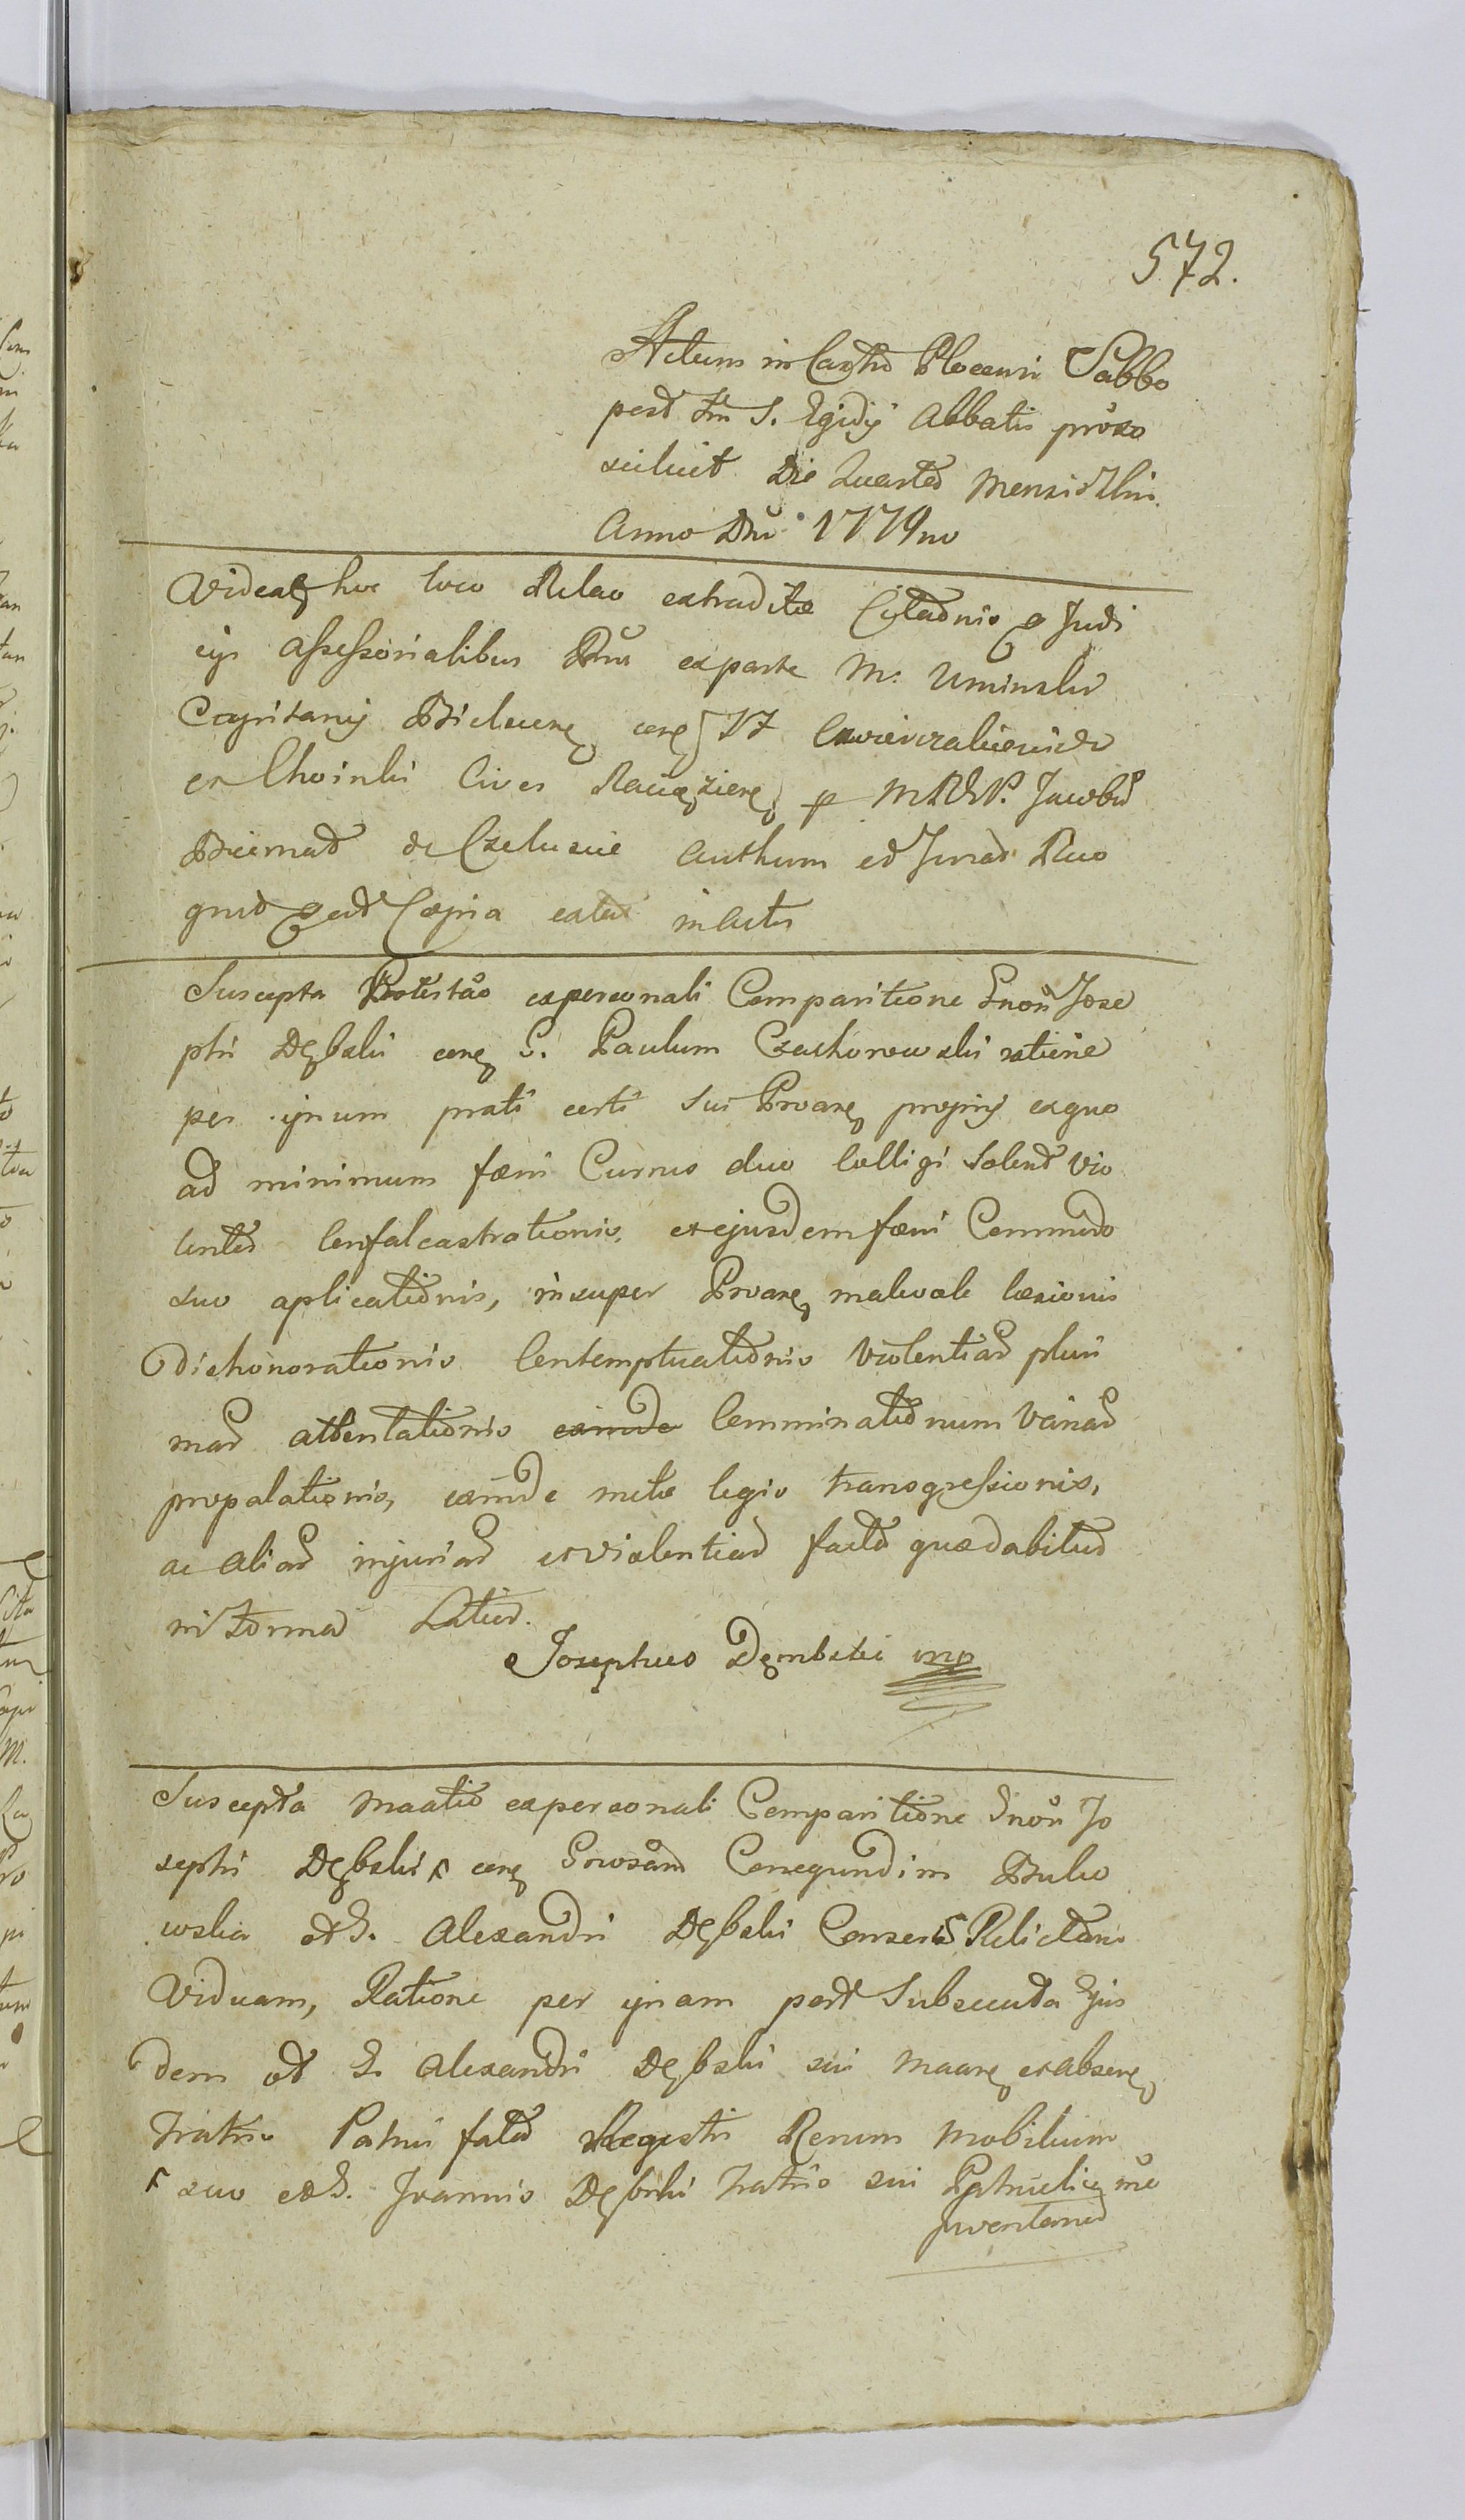 572.
Actum in Castro Plocensi Sabbo
post Fm S. Egidij Abbatis proxo
scilicet Die Quarta Mensis 7bris
Anno Dni 1779no
Videatz hoc loco Relao extraditae Citaonis e Judi
cijs Assessorialibus ex parte M. Uminski
Capitanij Bielscens cons
et Choinski Cives Raciąziens p MRDP. Jacobu
Biernat de authum et Jurat Reco
gnit eat Copia extat in Actis
Suscepta Protestao ex personali Comparitione Gnoů Jose
phi Dębski cons G. Paulum Czachorowski ratione
per ipsum prati certi sui Proans proprij ex quo
ad minimum faeni Currus duo Colligi solent vio
lenta Confalcastrationis, et ejusdem faeni Commodo
suo aplicationis, insuper Proans malevole laesionis
dishonorationis Contemptuationis Violentiar pluri
mar attentationis exinde Comminationum Variar
propalationis, exinde metae legis transgressionis,
ac aliar injuriar et violentiar facta quae dabitur
in Forma Latiori.
Josephus Dembski mp
Suscepta Maatio ex personali Comparitione Gnoů Jo
sephi Dębski cons Gnosam Conegundim Buko
wska ol G. Alexandri Dębski Consortis Relictam
Viduam, Ratione per ipsam post Subsecuta Ejus
dem ol G. Alexandri Dębski sui Maans et absens
Fratris Patrui fata Regestri Rerum Mobilium
suo et G. Joannis Dębski Fratris sui Patruelis noe
Inventarium